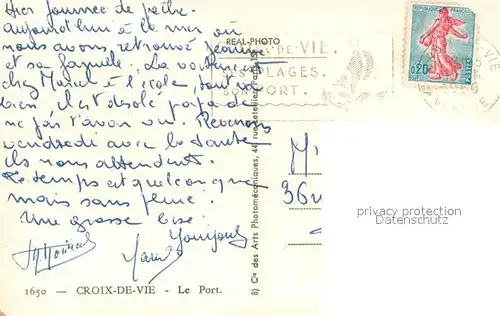 Hier journée de pêche.
aujourd'hui à la mer où
nous avons retrouvé Jeanne
et sa famille. La voiture est
chez Marcel à l'école, tout va
bien, il est désolé papa de
ne pas t'avoir vu. Revenons
vendredi avec la tante
ils nous attendent.
Le temps est quelconque
mais sans pluie.
Une grosse bise.
REAL-PHOTO
DE-VIE.
PLAGES.
SON PORT.
REPUBLIQUE FRANÇAISE
0,20
POSTES
VIE
M
36
8) Cie des Arts Photomécaniques, 44, rue Letellier
privacy protection
Datenschutz
1650 — CROIX-DE-VIE - Le Port.